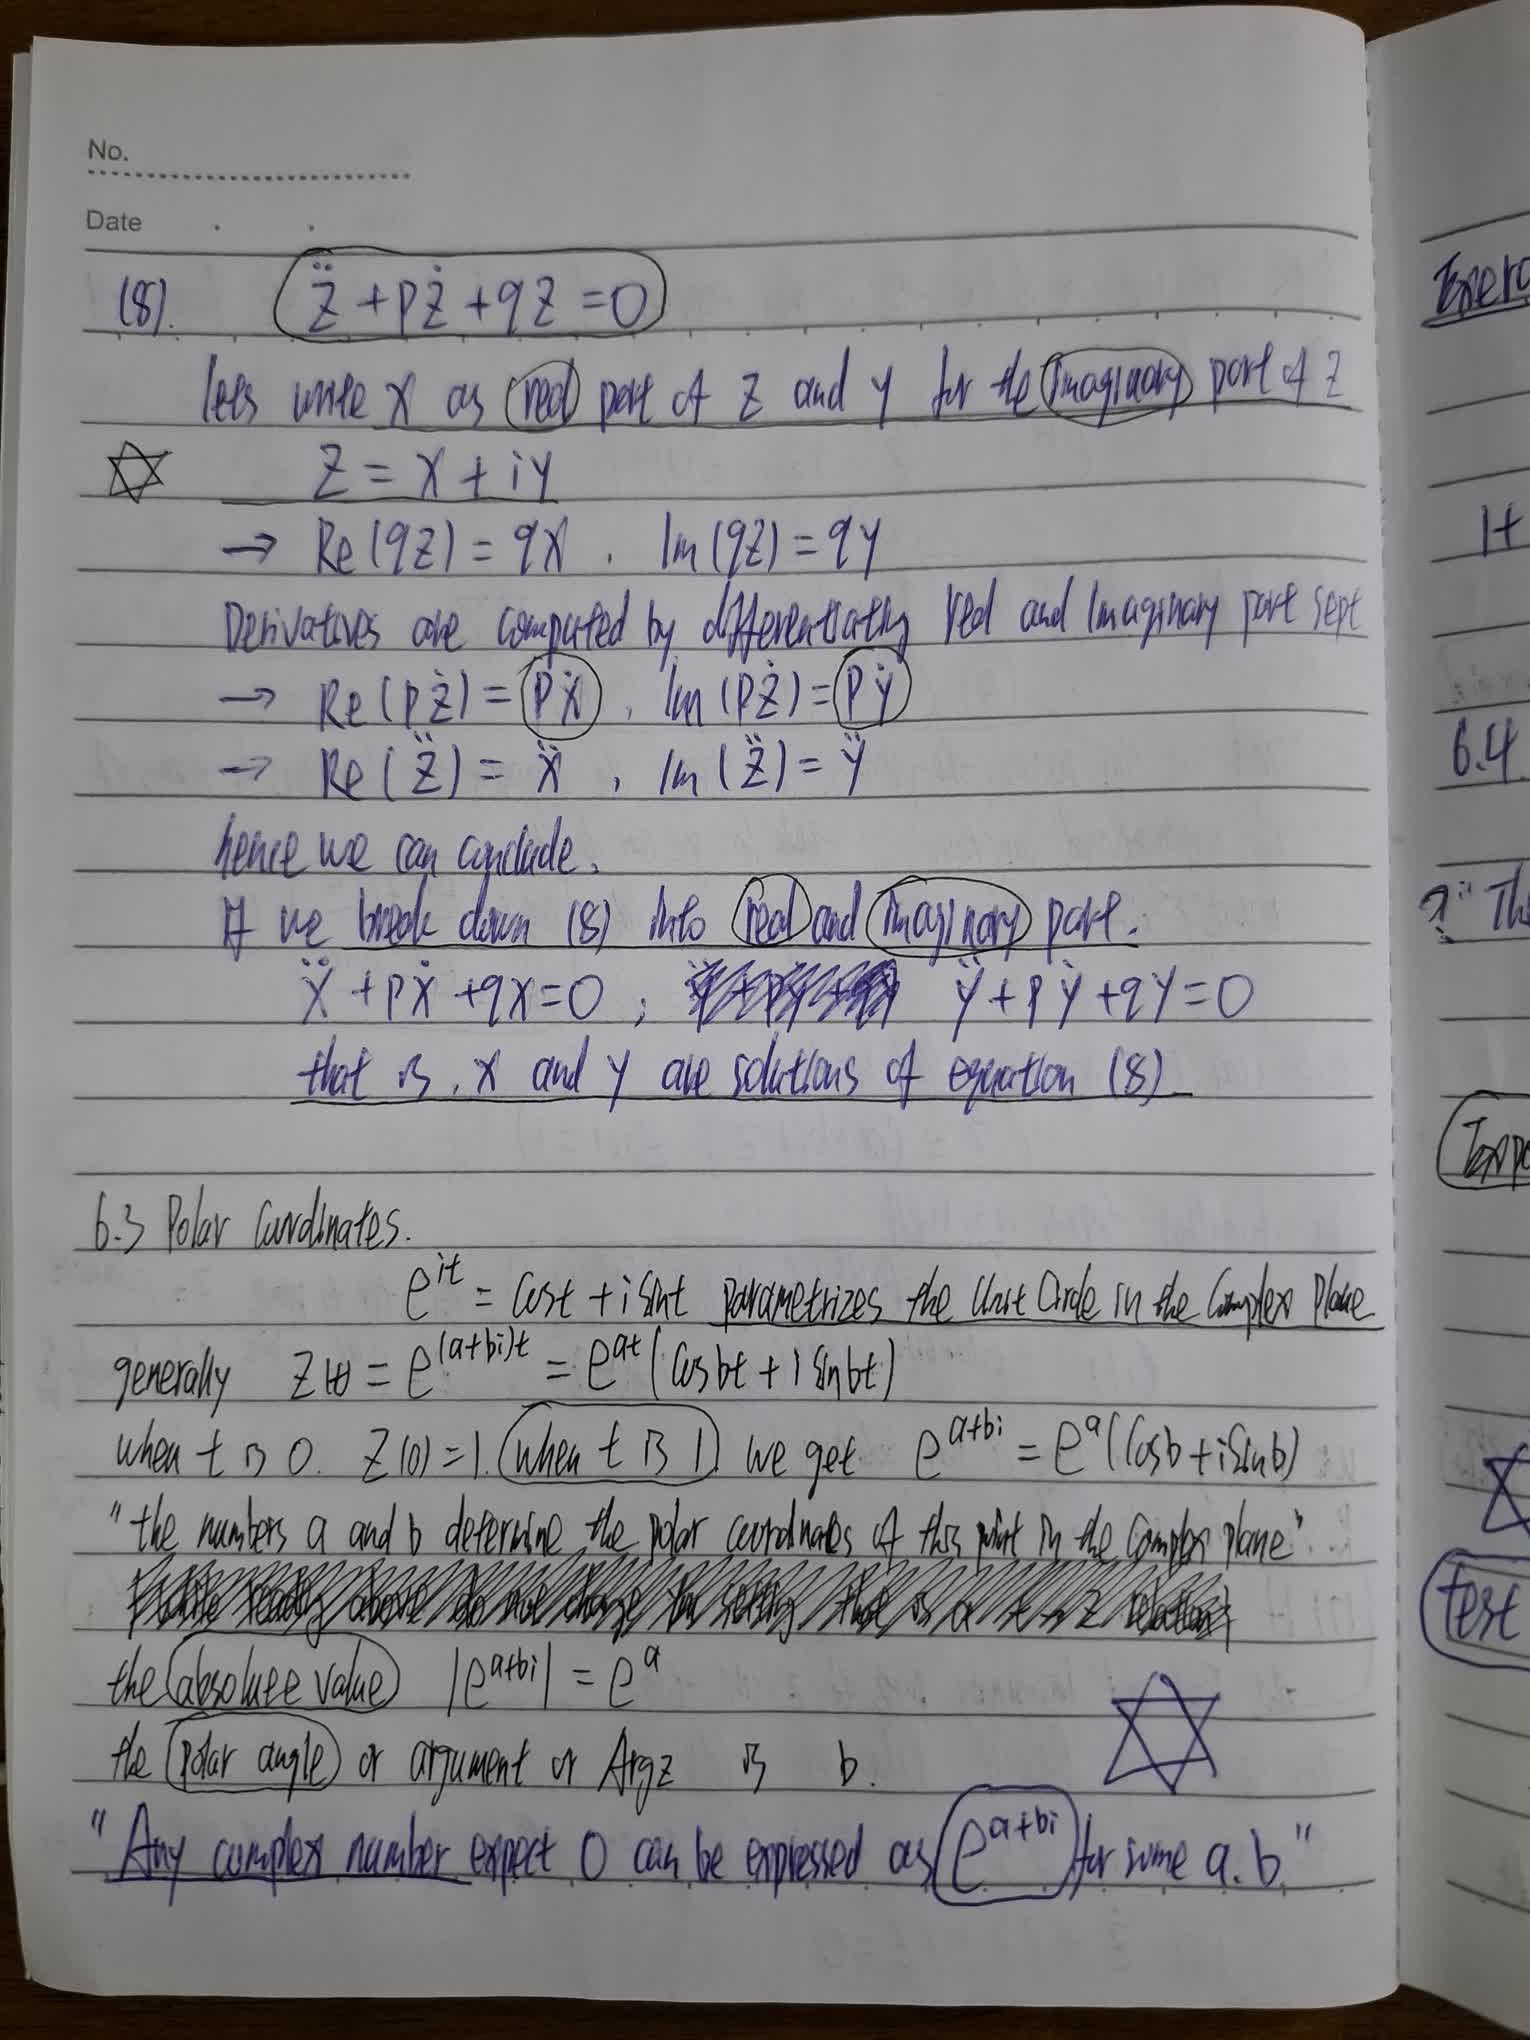 No.
Date
(8). z̈ + pż + qz = 0
lets write x as real part of z and y for the imaginary part of z
z = x + iy
→ Re(qz) = qx , Im(qz) = qy
Derivatives are computed by differentiating real and imaginary part sept
→ Re(pż) = pẋ , Im(pż) = pẏ
→ Re(z̈) = ẍ , Im(z̈) = ÿ
hence we can conclude.
If we break down (8) into real and imaginary part.
ẍ + pẋ + qx = 0 ; ÿ + pẏ + qy = 0
that is, x and y are solutions of equation (8)
6.3 Polar Coordinates.
e^{it} = cost + i sint parametrizes the Unit Circle in the Complex Plane
generally z(t) = e^{(a+bi)t} = e^{at}(cosbt + i sinbt)
when t is 0. z(0) = 1. when t is 1 we get e^{a+bi} = e^a(cosb + i sinb)
"the numbers a and b determine the polar coordinates of this point in the complex plane"
the absolute value |e^{a+bi}| = e^a
the polar angle or argument or Argz is b.
"Any complex number expect 0 can be expressed as e^{a+bi} for some a.b"
1+
6.4
? "Th
test